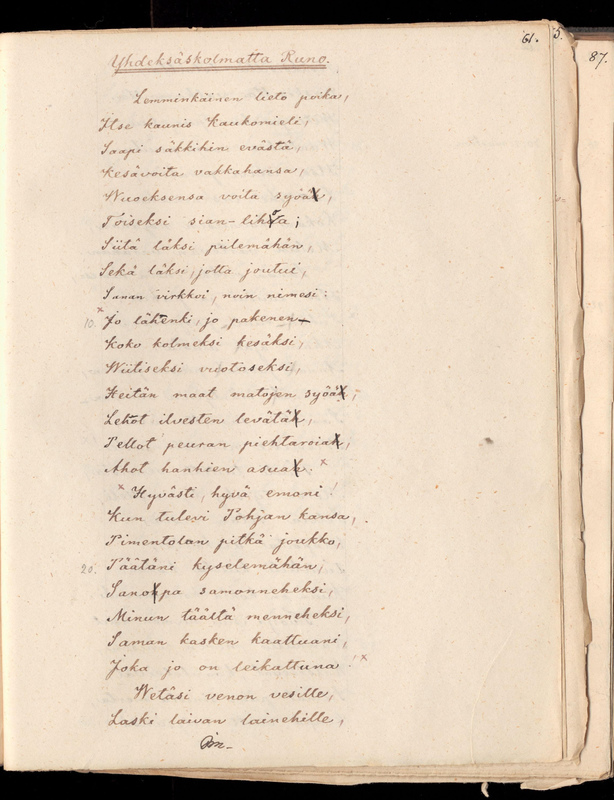 61.
5.
87.
Yhdeksäskolmatta Runo.
Lemminkäinen lieto poika,
Itse kaunis Kaukomieli,
Saapi säkkihin evästä,
Kesävoita vakkahansa,
Wuoeksensa voita syöä,
Toiseksi sian-lihoa;
Siitä läksi piilemähän,
Sekä läksi, jotta joutui,
Sanan virkkoi, noin nimesi:
10. × Jo lähenki, jo pakenen
Koko kolmeksi kesäksi,
Wiitiseksi vuotoseksi,
Heitän maat matojen syöä,
Lehot ilvesten levätä,
Pellot peuran piehtaroia,
Ahot hanhien asua. ×
× Hyvästi, hyvä emoni!
Kun tulevi Pohjan kansa,
Pimentolan pitkä joukko,
20. Päätäni kyselemähän,
Sanopa samonneheksi,
Minun täältä menneheksi,
Saman kasken kaattuani,
Joka jo on leikattuna! ×
Wetäsi venon vesille,
Laski laivan lainehille,